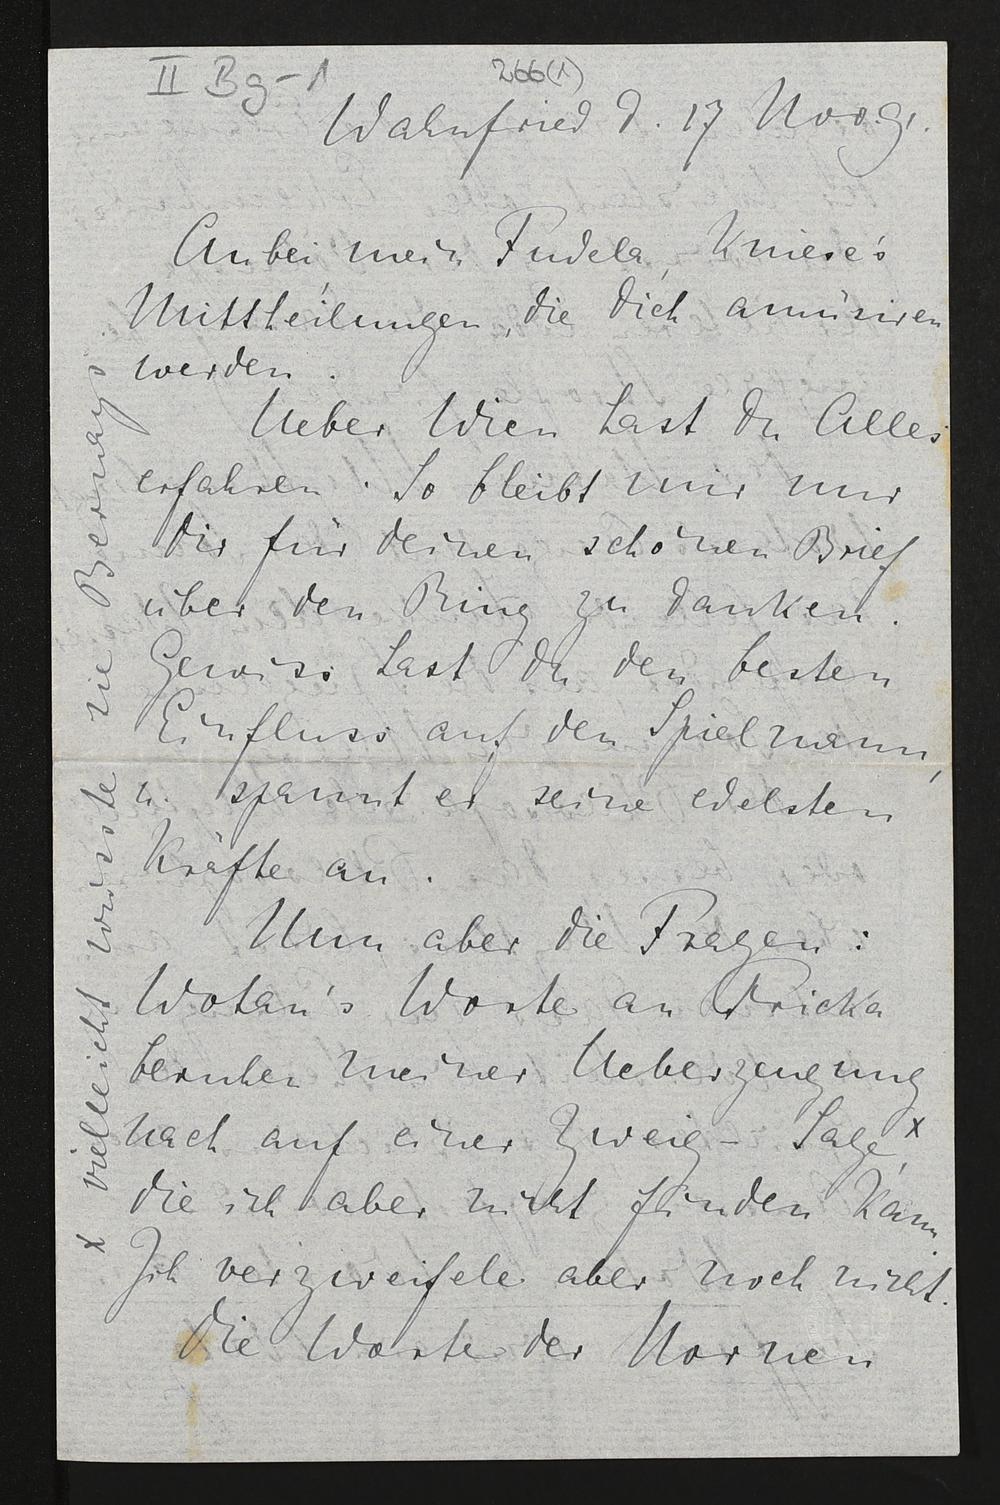 II Bg-1
266(1)
Wahnfried d. 17 Nov. 91.
Anbei mein Fudela, Kniese's
Mittheilungen, die dich amüsiren
werden.
Ueber Wien hast du Alles
erfahren. So bleibt mir nur
dir für deinen schönen Brief
über den Ring zu danken.
Gewiss hast du den besten
Einfluss auf den Spielmann,
u. spannt er seine edelsten
Kräfte an.
Nun aber die Fragen:
Wotan's Worte an Fricka
beruhen meiner Ueberzeugung
nach auf einer Zweig-Sage,x
die ich aber nicht finden kann.
Ich verzweifele aber noch nicht.
Die Worte der Nornen
x vielleicht wüsste sie Bernays.